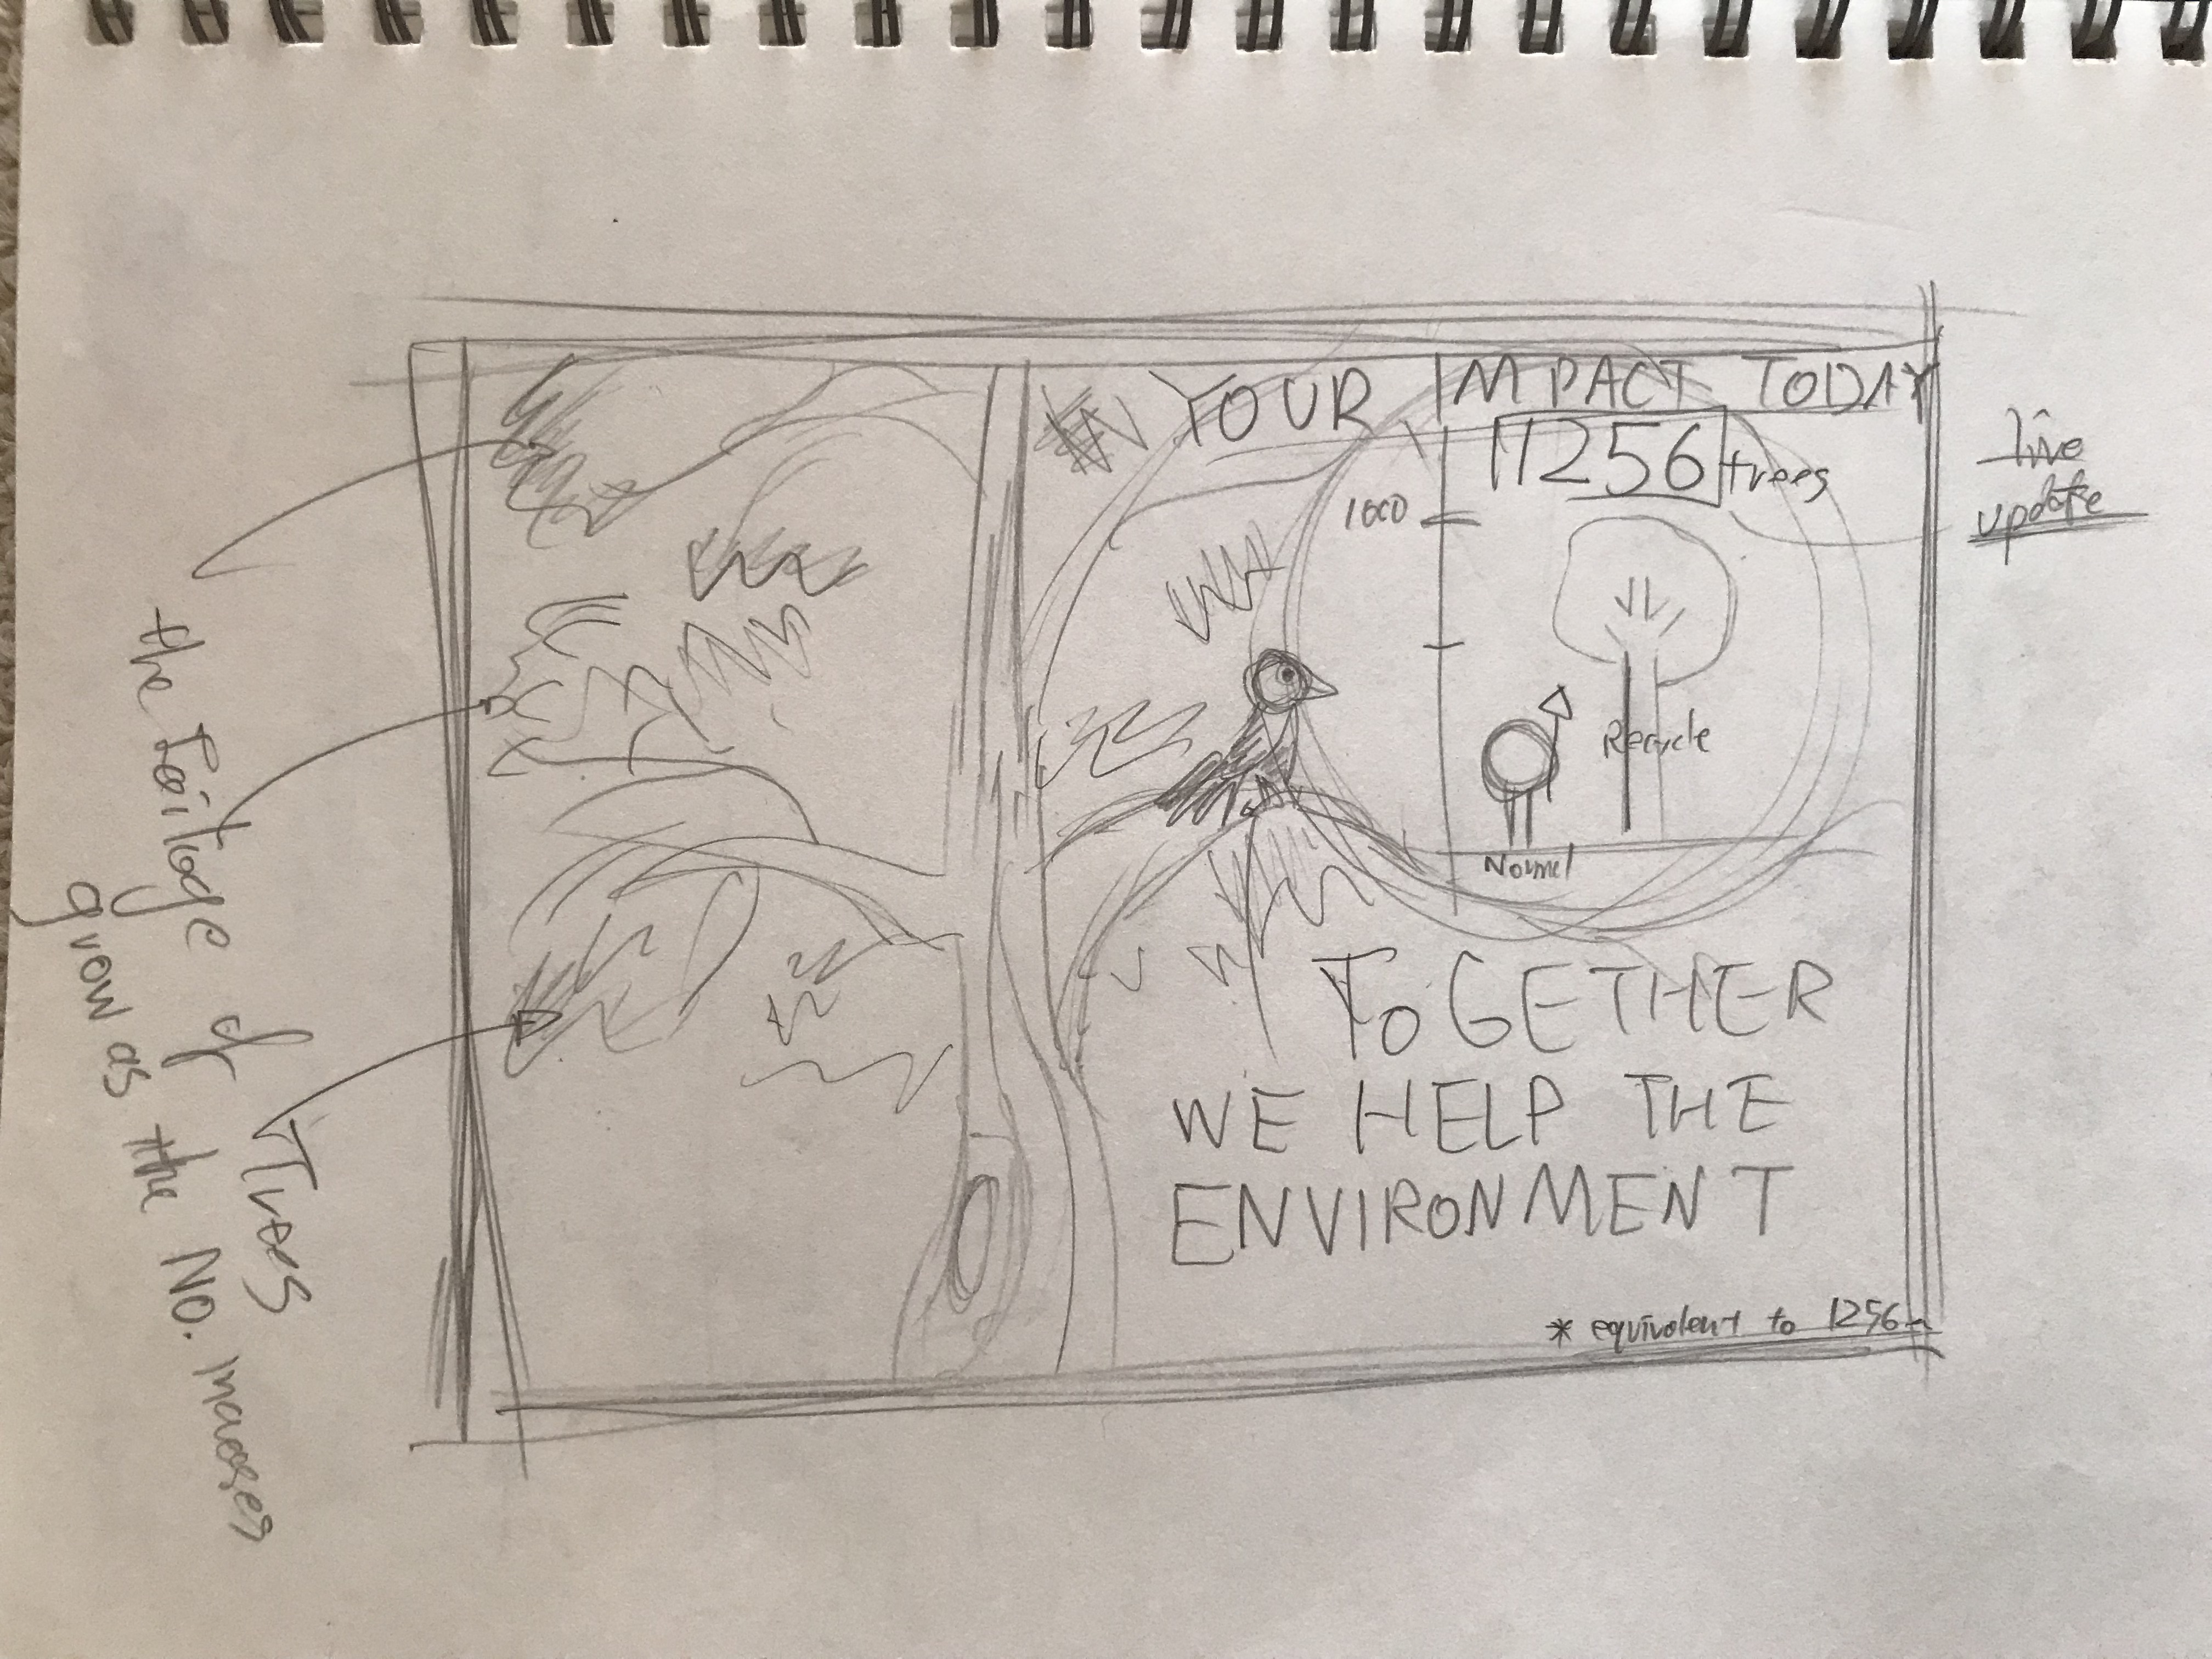 YOUR IMPACT TODAY
1256 trees
1000
live
update
Recycle
Normal
TOGETHER
WE HELP THE
ENVIRONMENT
* equivalent to 1256
the foilage of Trees
grow as the NO. increases